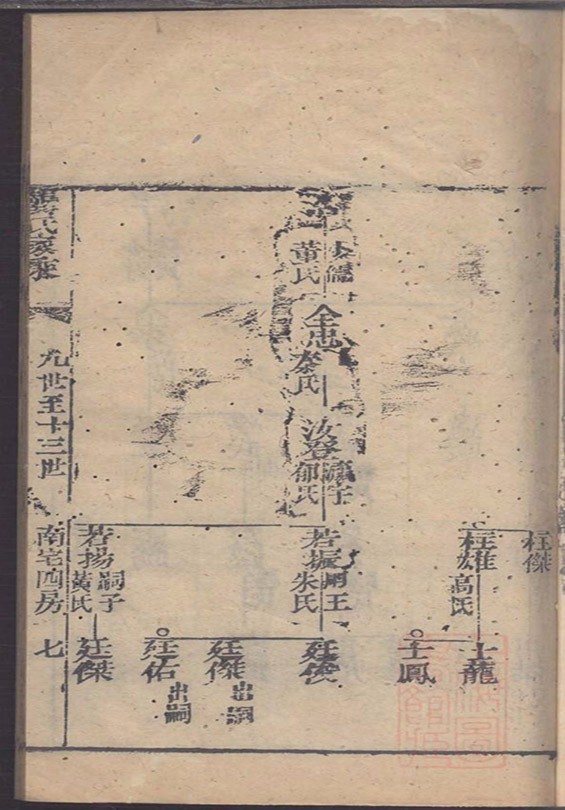 柱傑
柱雄
高氏
士龍
士鳳
董氏
全忠
秦氏
汝登
郁氏
若振
朱氏
廷俊
廷傑
出嗣
廷佑
出嗣
若揚
嗣子
黃氏
廷傑
氏家乘
九世至十三世
南宅四房
七